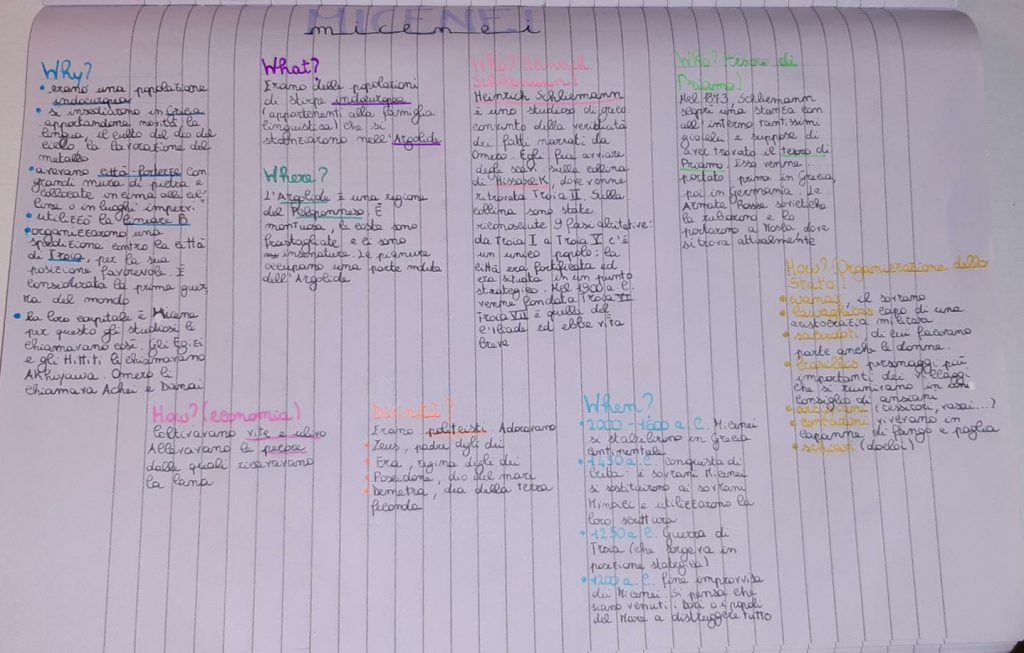 MICENEI
micenei
Why?
• erano una popolazione
indoeuropea
• si insediarono in Grecia
apportandone novità: la
lingua, il culto del dio del
cielo, la lavorazione del
metallo
• avevano città-fortezze con
grandi mura di pietra e
collocate in cima alle col-
line o in luoghi impervi.
• utilizzò la lineare B
• organizzarono una
spedizione contro la città
di Troia, per la sua
posizione favorevole. È
considerata la prima guer-
ra del mondo
• La loro capitale è Micene
per questo gli studiosi li
chiamavano così. Gli Egizi
e gli Hittiti li chiamavano
Akhiyawa. Omero li
chiamava Achei e Danai
What?
Erano delle popolazioni
di stirpe indoeuropea
(appartenenti alla famiglia
linguistica) che si
stanziarono nell'Argolide
Where?
L'Argolide è una regione
del Peloponneso. È
montuosa, le coste sono
frastagliate e ci sono
insenature. Le pianure
occupano una parte ridotta
dell'Argolide
Who? (Heinrich
Schliemann)
Heinrich Schliemann
è uno studioso di greco
convinto della veridicità
dei fatti narrati da
Omero. Egli fece avviare
degli scavi sulla collina
di Hissarlik, dove venne
ritrovata Troia II. Sulla
collina sono state
riconosciute 9 fasi abitative:
da Troia I a Troia V c'è
un unico popolo: la
città era fortificata ed
era situata in un punto
strategico. Nel 1900 a.C.
venne fondata Troia VI
Troia VII è quella del
l'Iliade ed ebbe vita
breve
Who? (tesoro di
Priamo)
Nel 1873 Schliemann
scoprì una stanza con
all'interno tantissimi
gioielli e suppose di
aver trovato il tesoro di
Priamo. Esso venne
portato prima in Grecia,
poi in Germania. Le
Armate Rosse sovietiche
la rubarono e lo
portarono a Mosca dove
si trova attualmente
How? (Organizzazione dello
Stato)
• wanax, il sovrano
• lawaghetas capo di una
aristocrazia militare
• sacerdoti, di cui facevano
parte anche le donne.
• basileus personaggi più
importanti dei villaggi
che si riunivano in un
consiglio di anziani
• artigiani (tessitori, vasai...)
• contadini vivevano in
capanne di fango e paglia
• schiavi (doeloi)
How? (economia)
Coltivavano vite e ulivo
Allevavano le pecore
dalle quali ricavavano
la lana
Divinità?
Erano politeisti. Adoravano
• Zeus, padre degli dei
• Era, regina degli dei
• Poseidone, dio del mare
• Demetra, dia della terra
feconda
When?
• 2000-1600 a.C. Micenei
si stabilirono in Grecia
continentale
• 1450 a.C. conquista di
Creta: i sovrani Micenei
si sostituirono ai sovrani
Minoici e utilizzarono la
loro scrittura
• 1250 a.C. Guerra di
Troia (che sorgeva in
posizione strategica)
• 1200 a.C. fine improvvisa
dei Micenei. Si pensa che
siano venuti i Dori o i popoli
del Mare a distruggere tutto